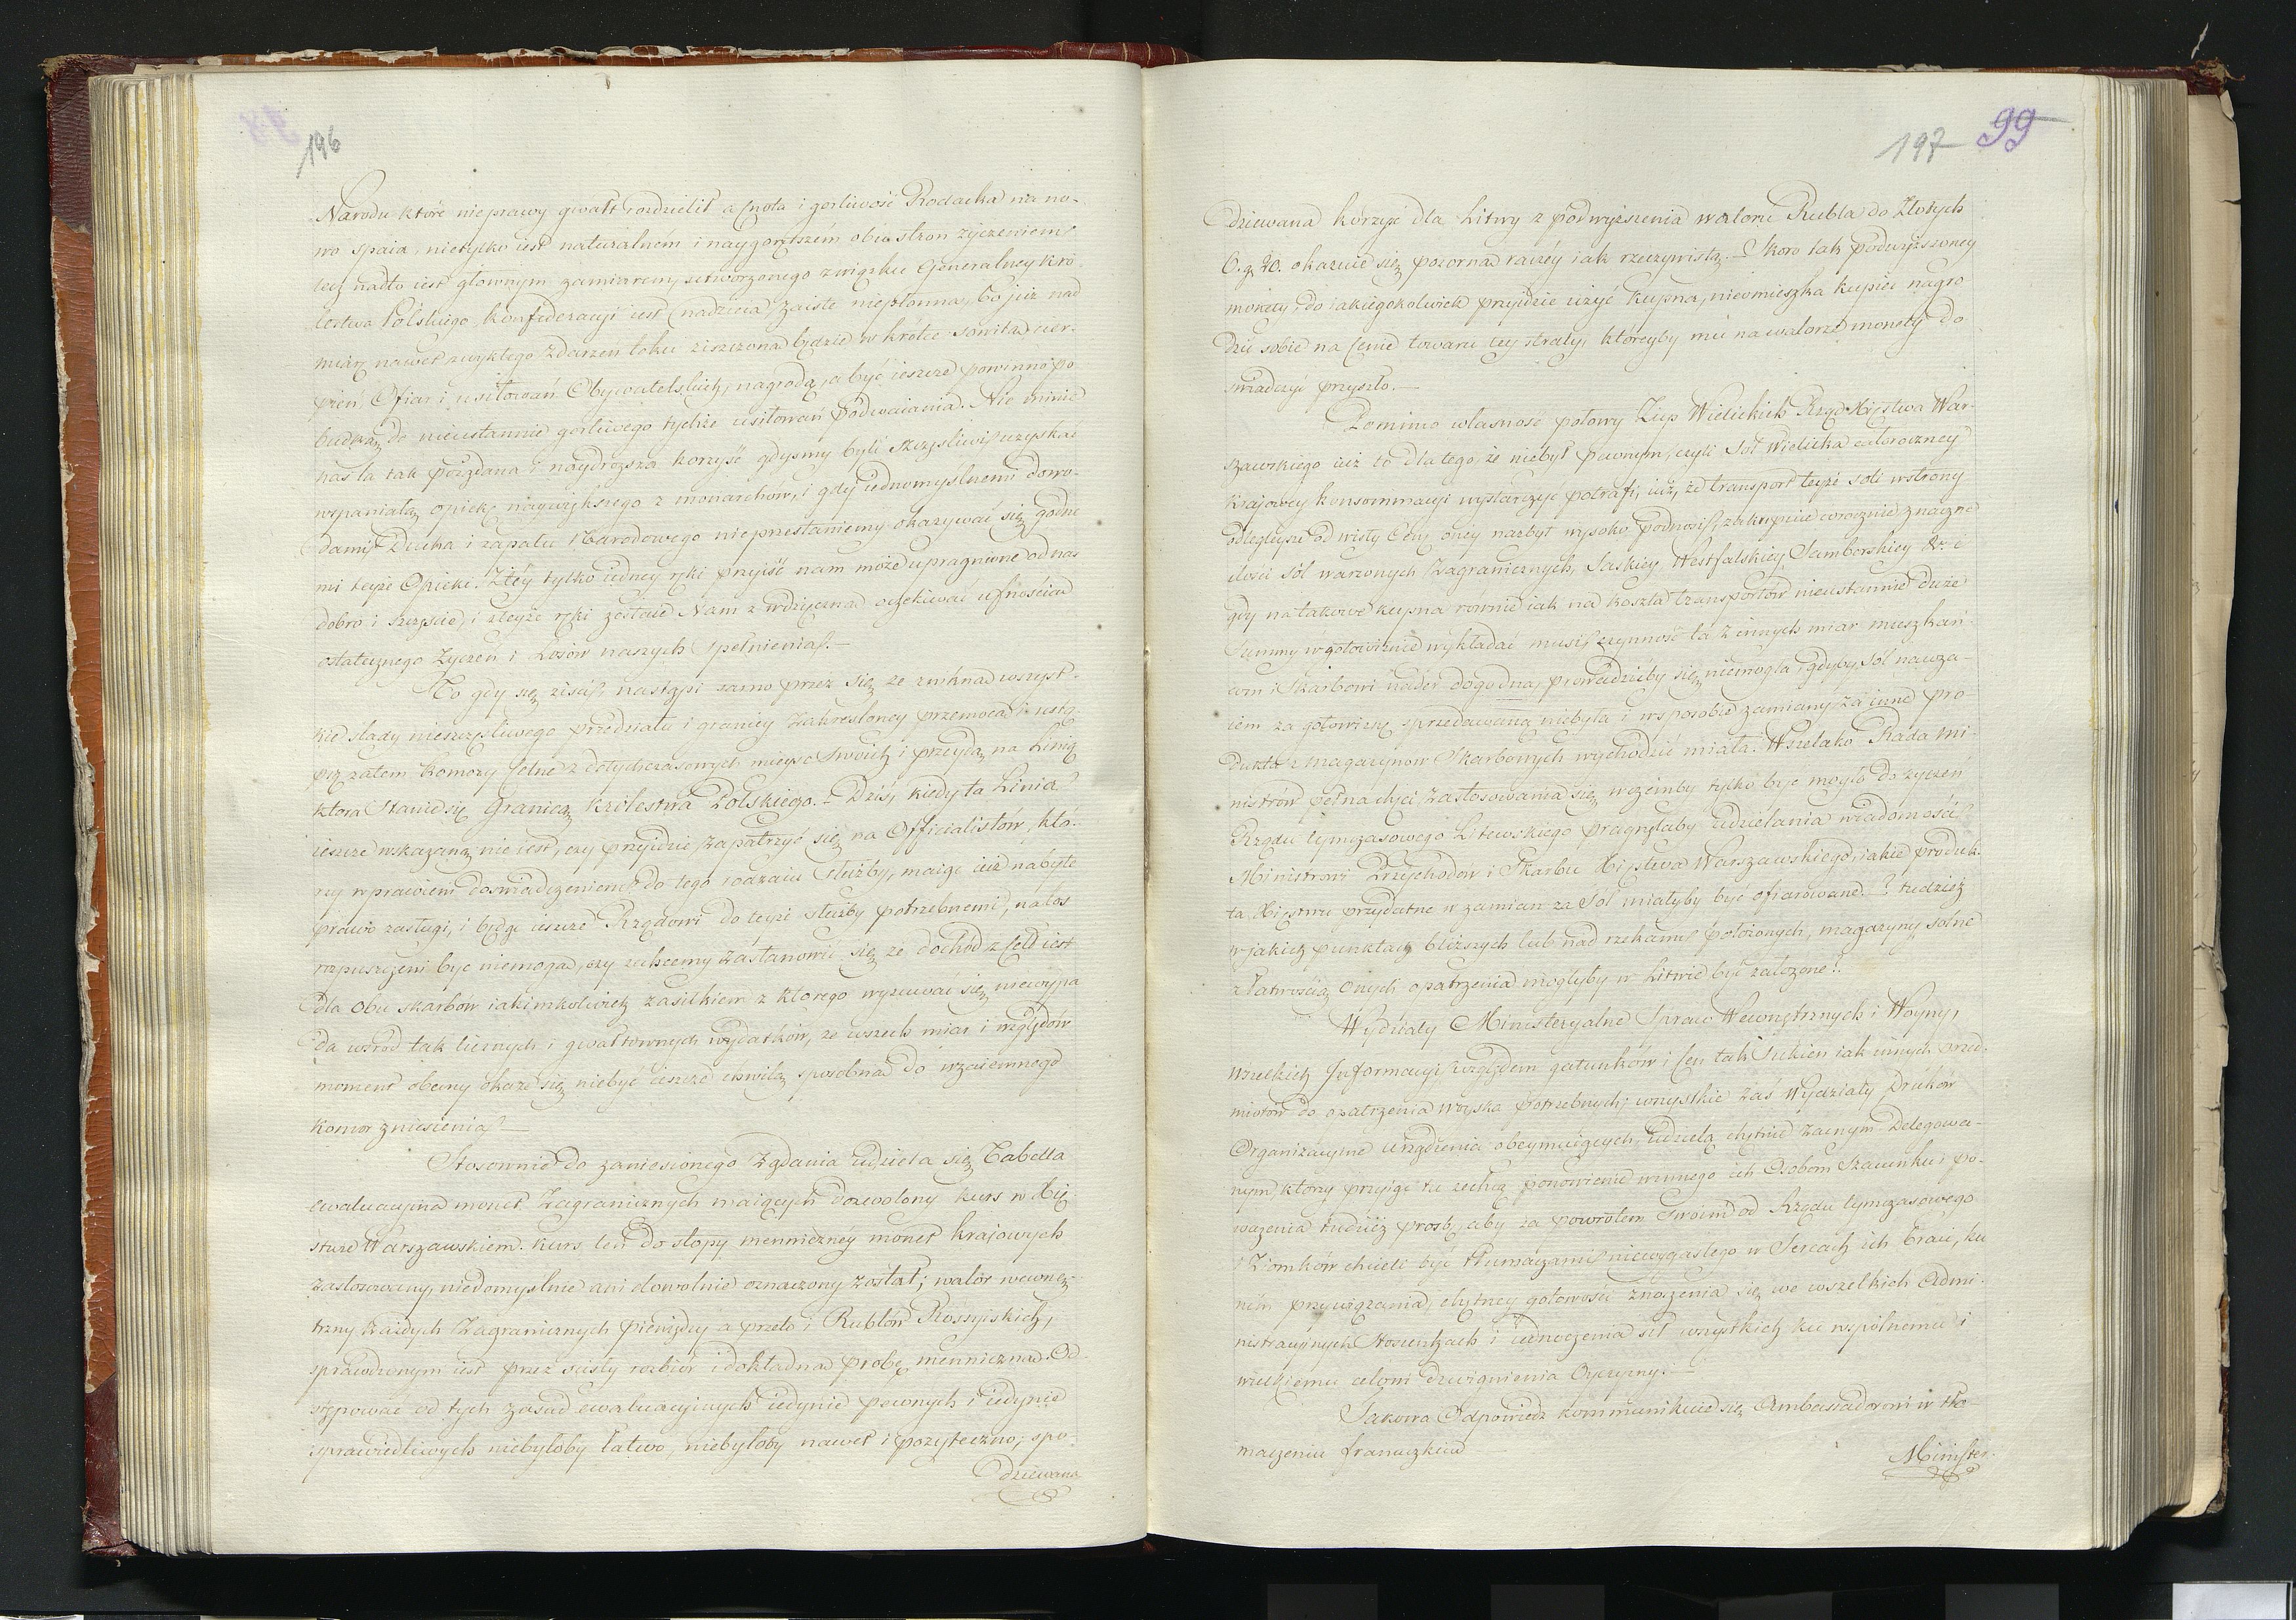 196
Narodu które nieprawy gwałt rozdzielił a Cnota i gorliwość Rodacka na no-
wo spaia, nietylko iest naturalném i naygorętszém obu stron życzeniem
lecz nadto iest głownym zamiarem, utworzonego związku Generalney Kró
lestwa Polskiego konfederacyi iest (nadzieia) zaiste niepłonna, bo już nad
miarę nawet zwykłego zdarzeń toku ziszczona będzie w krótce sowitą cier-
pień, Ofiar i usiłowań Obywatelskich, nagrodą, a być ieszcze powinno po
budką do nieustannie gorliwego tychże usiłowań podwaiania. Nie minie
nas ta tak pożądana i naydroższa korzyść gdyśmy byli szczęśliwi uzyskać
wspaniałą opiekę naywiększego z monarchów, i gdy iednomyślnemi dowo-
dami Ducha i zapału Narodowego nieprzestaniemy okazywać się godne
mi teyże Opieki. Z téy tylko iedney ręki przyiść nam może upragnione od nas
dobro i szczęście, i z teyże ręki zostaie Nam z wdzięczną oczekiwać ufnością
ostatecznego życzeń i Losów naszych spełnienia.—
To gdy się ziści, nastąpi samo przez się że znikną wszyst-
kie ślady nieszczęśliwego przedziału i granicy zakreśloney przemocą i ustą-
pią zatem komory Celne z dotychczasowych mieysc swoich i przeydą na Linią
ktora stanie się Granicą Królestwa Polskiego.- Dziś, kiedy ta Linia
ieszcze wskazaną nie iest, czy przyidzie zapatrzyć się na Officialistów, któ-
rzy wprawieni doświadczeniem do tego rodzaiu służby, maiąc iuż nabyte
prawo zasługi, i będąc ieszcze Rządowi do teyże służby potrzebnemi, na los
rozpuszczeni być niemogą, czy zechcemy zastanowić się że dochód z Ceł iest
dla obu skarbów iakimkolwiek zasiłkiem z ktorego wyzuwać się niewypa
da wśród tak licznych i gwałtownych wydatków, ze wszech miar i względów
moment obecny okaże się niebyć ieszcze chwilą sposobną do wzaiemnego
komor zniesienia?—
Stosownie do zaniesionego żądania udziela się Tabella
ewaluacyina monet Zagranicznych maiących dozwolony kurs w Xię
stwie Warszawskiem. Kurs ten do stopy menniczney monet krajowych
zastosowany, niedomyślnie ani dowolnie oznaczony został; walor wewnę-
trzny każdych Zagranicznych pieniędzy a przeto i Rublów Rossyiskich,
sprawdzonym iest przez ścisły rozbiór i dokładną probę menniczną. Od-
stępować od tych zasad ewaluacyinych iedynie pewnych i iedynie
sprawiedliwych niebyłoby łatwo, niebyłoby nawet i pożyteczno; spo
dziewana
197 99
dziewana korzyść dla Litwy z podwyższenia waloru Rubla do Złotych
6. g. 20. okazuie się pozorną raczéy iak rzeczywistą.— Skoro tak podwyższoney
monety, do iakiegokolwiek przyidzie użyć kupna, nieomieszka kupiec nagro
dzić sobie na Cenie towaru tey straty, któreyby mu na walorze monety do
świadczyć przyszło.—
Pomimo własność połowy Żup Wielickich Rząd Xięstwa War-
szawskiego iuż to dlatego, że niebył pewnym, czyli sól Wielicka całoroczney
krajowey konsommacyi wystarczyć potrafi, iuż, że transport teyże soli w strony
odlegleysze od wisły Cenę oney nazbyt wysoko podnosił, zakupuie corocznie znaczne
ilości sól warzonych Zagranicznych, Saskiey Westfalskiey Samborskiey &c. e
gdy na takowe kupna równie iak na koszta transportów nieustannie duże
Summy w gotowiznie wykładać musi, czynność ta z innych miar mieszkań-
com i Skarbowi nader dogodna, prowadzićby się niemogła, gdyby sól nawza-
iem za gotowiznę sprzedawaną niebyła i w sposobie zamiany za inne pro
dukta z magazynów Skarbowych wychodzić miała. Wszelako Rada Mi-
nistrów pełna chęci zastosowania się w czemby tylko być mogło do życzeń
Rządu tymczasowego Litewskiego pragnęłaby udzielania wiadomości
Ministrowi Przychodow i Skarbu Xięstwa Warszawskiego, iakie produk-
ta Xięstwu przydatne w zamian za Sól miałyby być ofiarowane? tudzież
w jakich punktach bliższych lub nad rzekami położonych, magazyny solne
z łatwością onych opatrzenia mogłyby w Litwie być założone?.
Wydziały Ministeryalne Spraw Wewnętrznych i Woyny,
wszelkich Informacyi względem gatunków i Cen tak Sukien iak innych przed-
miotów do opatrzenia woyska potrzebnych; wszystkie zaś Wydziały, Druków
Organizacyine urządzenia obeymuiących, udzielą chętnie zacnym Delegowa-
nym którzy przyiąć tu zechcą ponowienie winnego ich Osobom szacunku i po-
ważenia tudzież prośb, aby za powrotem Swoim od Rządu tymczasowego
i Ziomków chcieli być tłumaczami niewygasłego w Sercach ich Braci, ku
nim przywiązania, chętney gotowości znoszenia się we wszelkich admi-
nistracyjnych Stosunkach i iednoczenia sił wszystkich ku wspólnemu i
wielkiemu celowi dźwignienia Oyczyzny.—
Jakowa Odpowiedz kommunikuie się Ambassadorowi w tło-
maczeniu francuzkim —
Minister.